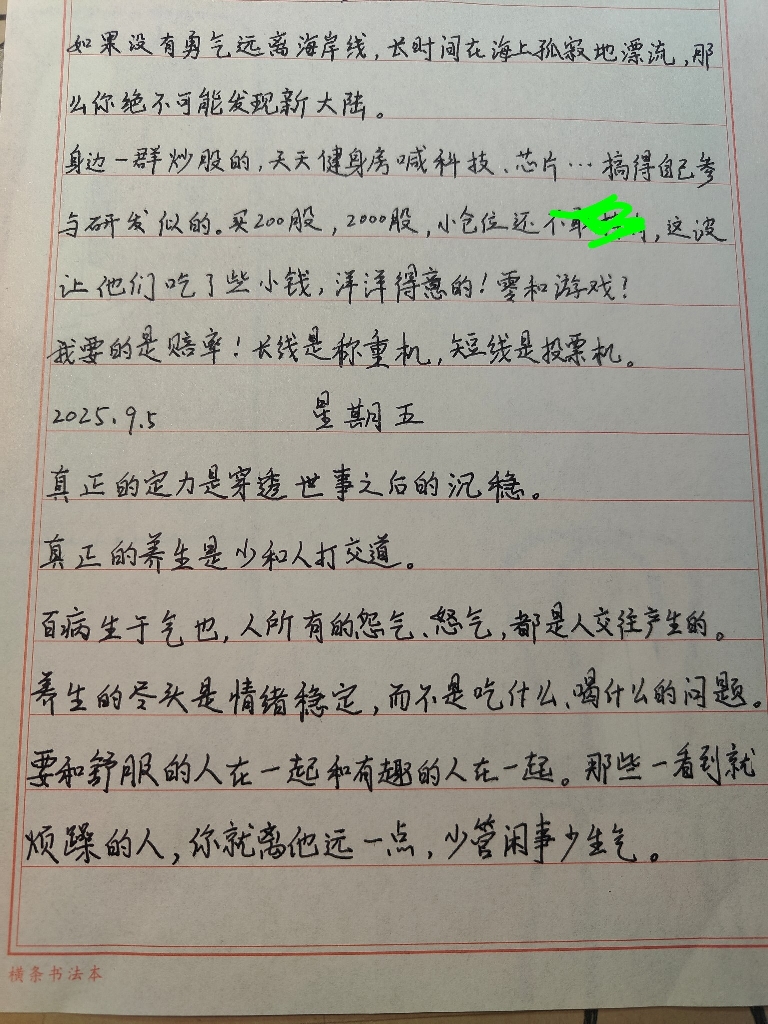 如果没有勇气远离海岸线,长时间在海上孤寂地漂流,那
么你绝不可能发现新大陆。
身边一群炒股的,天天健身房喊科技、芯片…搞得自己参
与研发似的。买200股,2000股,小仓位还不,这波
让他们吃了些小钱,洋洋得意的!零和游戏?
我要的是赔率!长线是称重机,短线是投票机。
2025.9.5 星期五
真正的定力是穿透世事之后的沉稳。
真正的养生是少和人打交道。
百病生于气也,人所有的怨气、怒气,都是人交往产生的。
养生的尽头是情绪稳定,而不是吃什么、喝什么的问题。
要和舒服的人在一起和有趣的人在一起。那些一看到就
烦躁的人,你就离他远一点,少管闲事少生气。
横条书法本